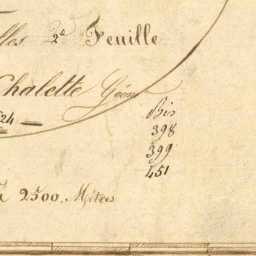 lles 2e Feuille
Chalette Géom
24
Bis
398
399
451
à 2500. Mètres